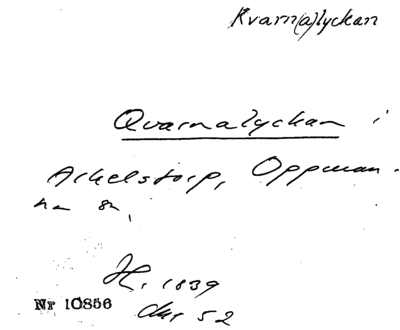 Kvarn(a)lyckan
Qvarnalyckan i
Arkelstorp, Oppman-
na sn,
H. 1839
Nr 10856
Akt 52